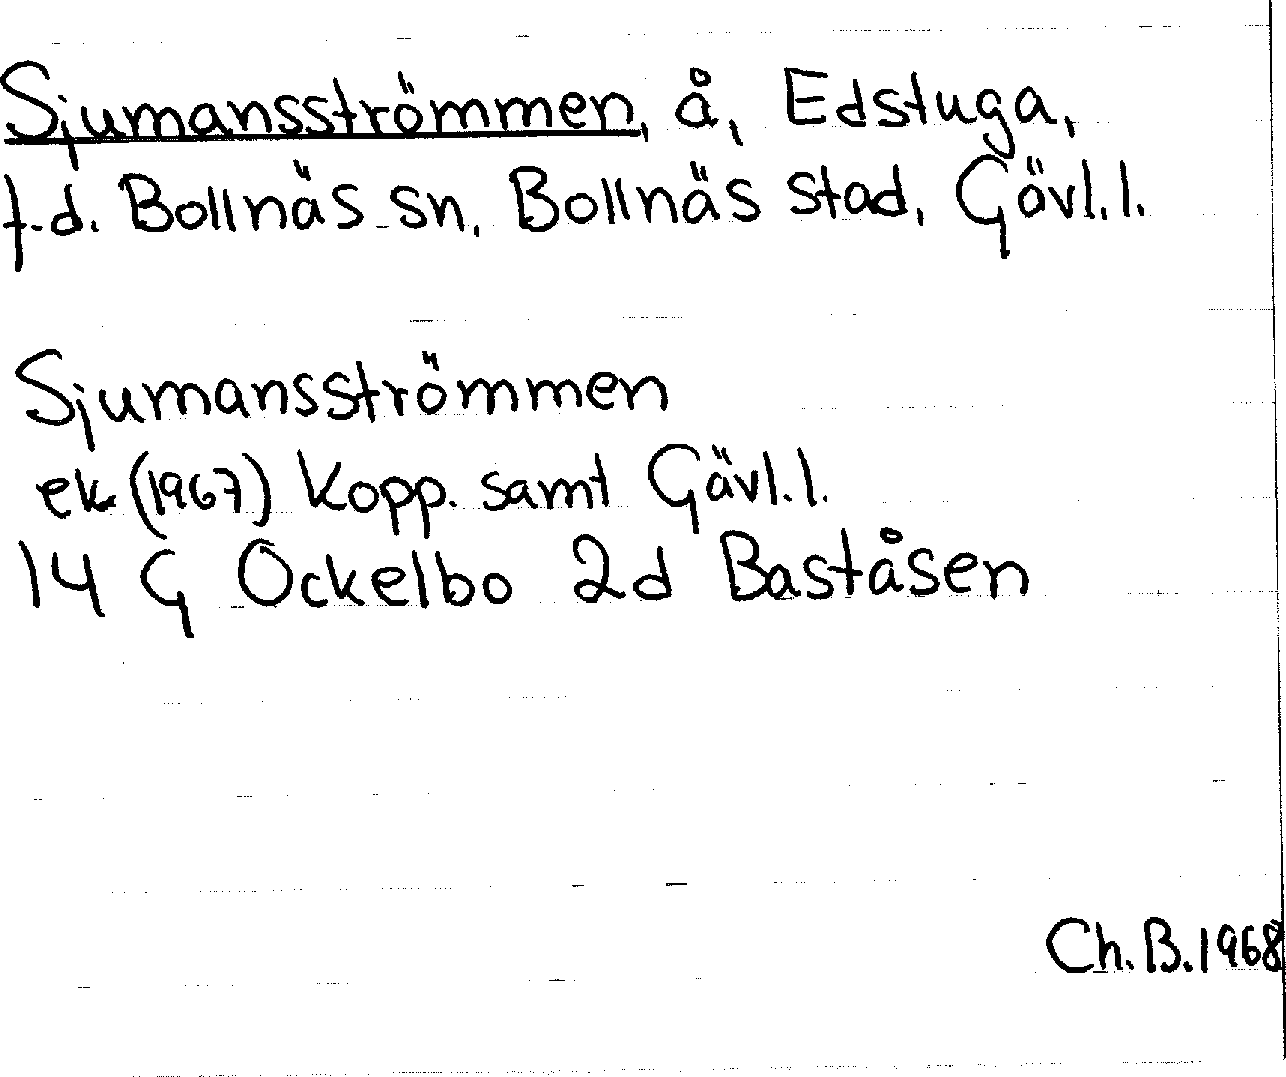 Sjumansströmmen, å, Edstuga,
f.d. Bollnäs sn, Bollnäs stad, Gävl.l.
Sjumansströmmen
ek (1967) Kopp. samt Gävl.l.
14 G Ockelbo 2d Baståsen
Ch.B.1968